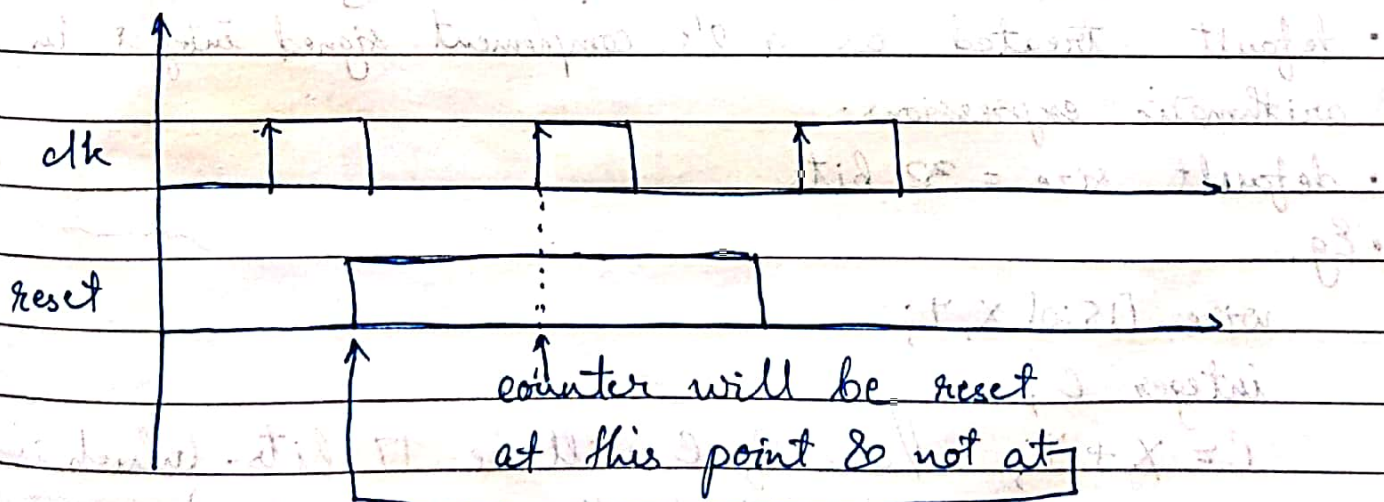 clk
reset
counter will be reset
at this point & not at